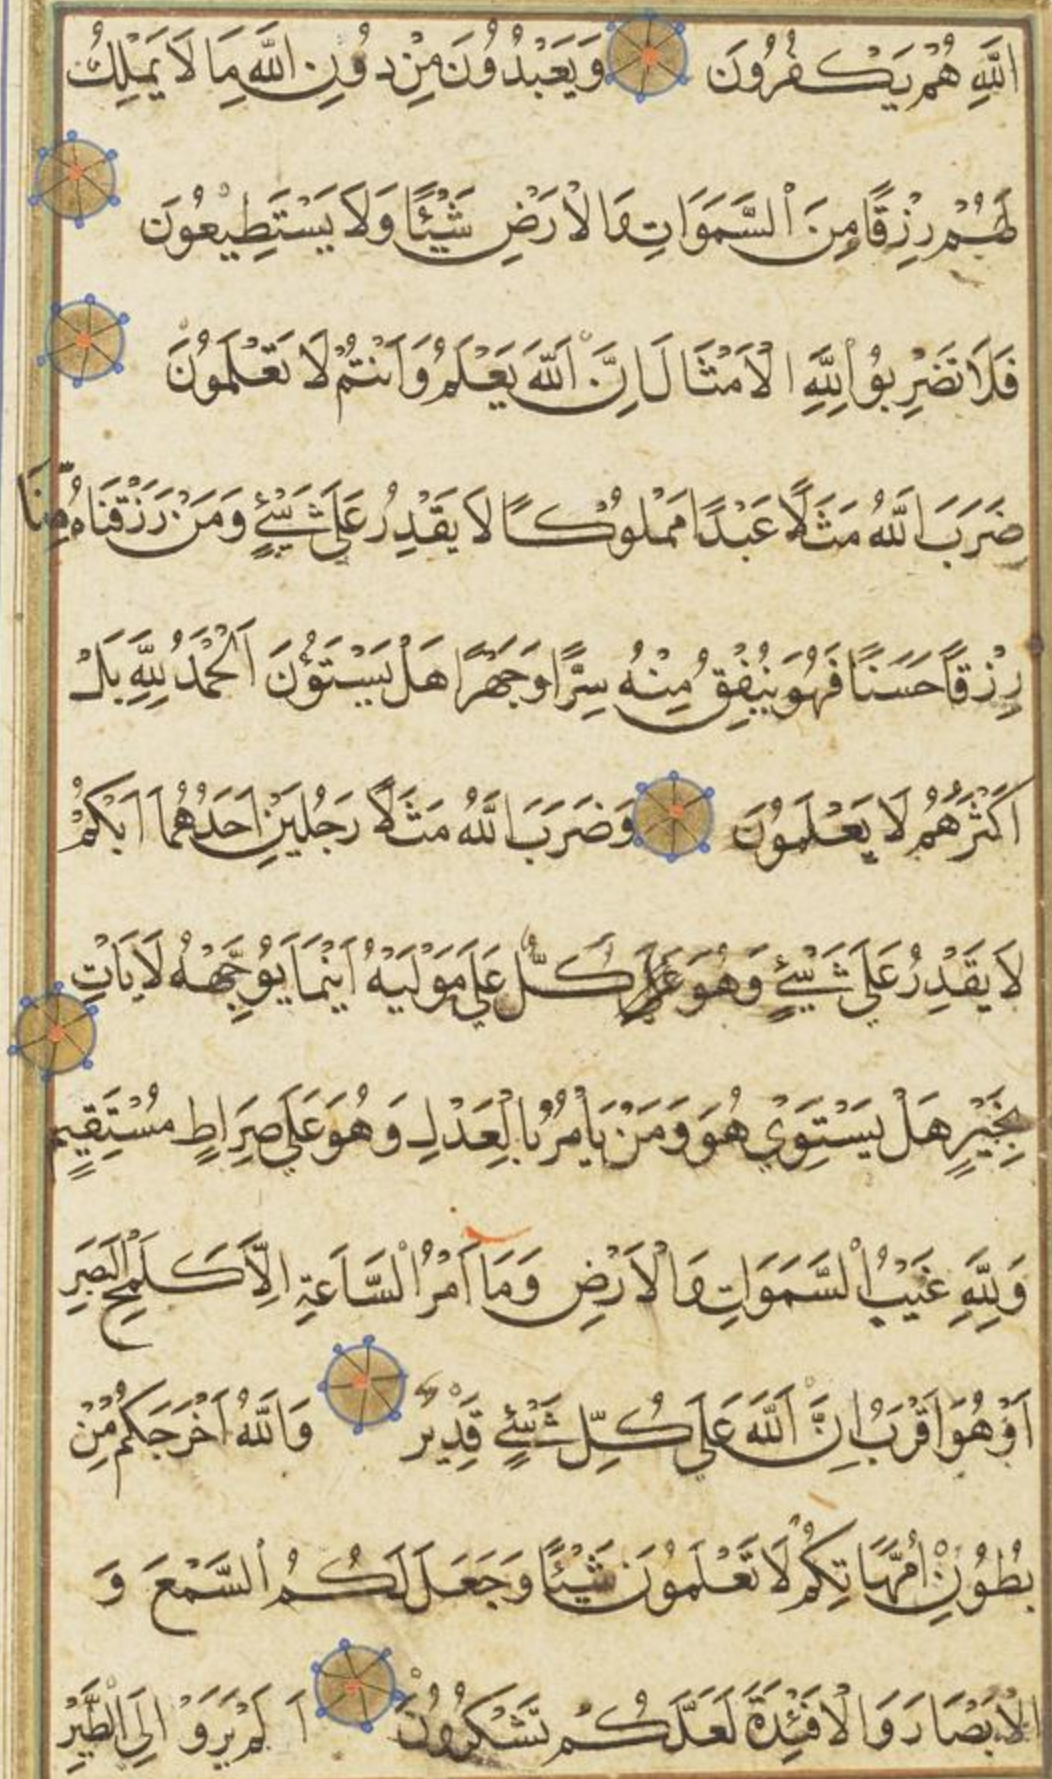 اللَّهِ هُمْ يَكْفُرُونَ وَيَعْبُدُونَ مِنْ دُونِ اللَّهِ مَا لَا يَمْلِكُ
لَهُمْ رِزْقًا مِنَ السَّمَوَاتِ وَالْاَرْضِ شَيْئًا وَلَا يَسْتَطِيعُونَ
فَلَا تَضْرِبُوا لِلَّهِ الْاَمْثَالَ اِنَّ اللَّهَ يَعْلَمُ وَاَنْتُمْ لَا تَعْلَمُونَ
ضَرَبَ اللَّهُ مَثَلًا عَبْدًا مَمْلُوكًا لَا يَقْدِرُ عَلَى شَيْءٍ وَمَنْ رَزَقْنَاهُ مِنَّا
رِزْقًا حَسَنًا فَهُوَ يُنْفِقُ مِنْهُ سِرًّا وَجَهْرًا هَلْ يَسْتَوُنَ اَلْحَمْدُ لِلَّهِ بَلْ
اَكْثَرُهُمْ لَا يَعْلَمُونَ وَضَرَبَ اللَّهُ مَثَلًا رَجُلَيْنِ اَحَدُهُمَا اَبْكَمُ
لَا يَقْدِرُ عَلَى شَيْءٍ وَهُوَ كَلٌّ عَلَى مَوْلَيهُ اَيْنَمَا يُوَجِّهْهُ لَا يَاْتِ
بِخَيْرٍ هَلْ يَسْتَوِي هُوَ وَمَنْ يَاْمُرُ بِالْعَدْلِ وَهُوَ عَلَى صِرَاطٍ مُسْتَقِيمٍ
وَلِلَّهِ غَيْبُ السَّمَوَاتِ وَالْاَرْضِ وَمَا اَمْرُ السَّاعَةِ اِلَّا كَلَمْحِ الْبَصَرِ
اَوْ هُوَ اَقْرَبُ اِنَّ اللَّهَ عَلَى كُلِّ شَيْءٍ قَدِيرٌ وَاللَّهُ اَخْرَجَكُمْ مِنْ
بُطُونِ اُمَّهَاتِكُمْ لَا تَعْلَمُونَ شَيْئًا وَجَعَلَ لَكُمُ السَّمْعَ وَ
الْاَبْصَارَ وَالْاَفْئِدَةَ لَعَلَّكُمْ تَشْكُرُونَ اَلَمْ يَرَوْا اِلَى الطَّيْرِ